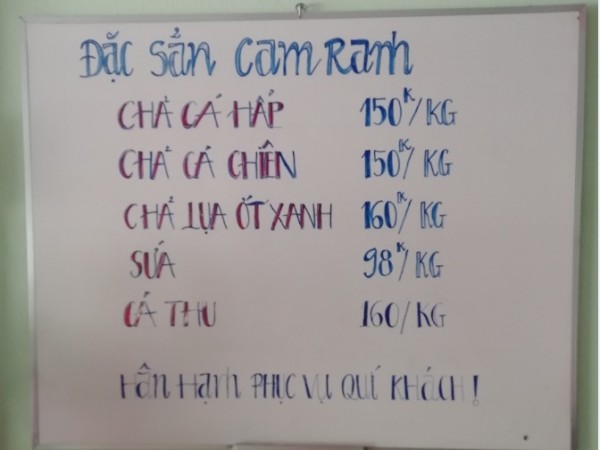 ĐẶC SẢN CAM RANH
CHẢ CÁ HẤP 150K/KG
CHẢ CÁ CHIÊN 150K/KG
CHẢ LỤA ỚT XANH 160K/KG
SỨA 98K/KG
CÁ THU 160/KG
HÂN HẠNH PHỤC VỤ QUÍ KHÁCH!